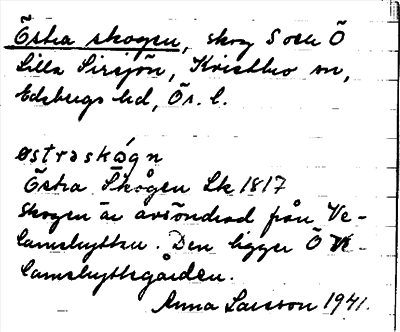 Östra skogen, skog S och Ö
Lilla Sirsjön, Kvistbro sn,
Edsbergs hd, Ör. l.
østraskógn
Östra Skogen Lk 1817
Skogen är avsöndrad från Ve-
lamshyttan. Den ligger Ö Ve-
lamshyttegården.
Anna Larsson 1941.